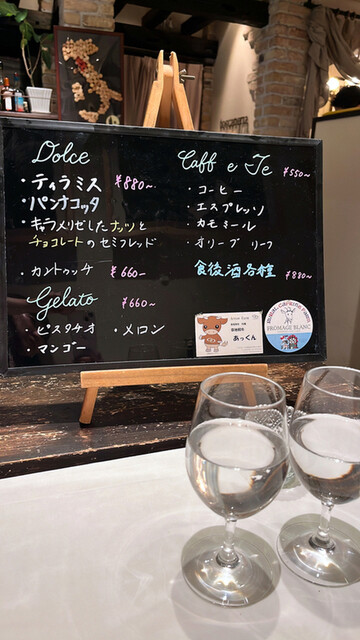 Dolce
・ティラミス ¥880~
・パンナコッタ
・キャラメリゼしたナッツと
チョコレートのセミフレッド
・カントゥッチ ¥660~
Gelato ¥660~
・ピスタチオ ・メロン
・マンゴー
Caff e Te ¥550~
・コーヒー
・エスプレッソ
・カモミール
・オリーブ リーフ
食後酒各種 ¥880~
あっくん
FROMAGE BLANC